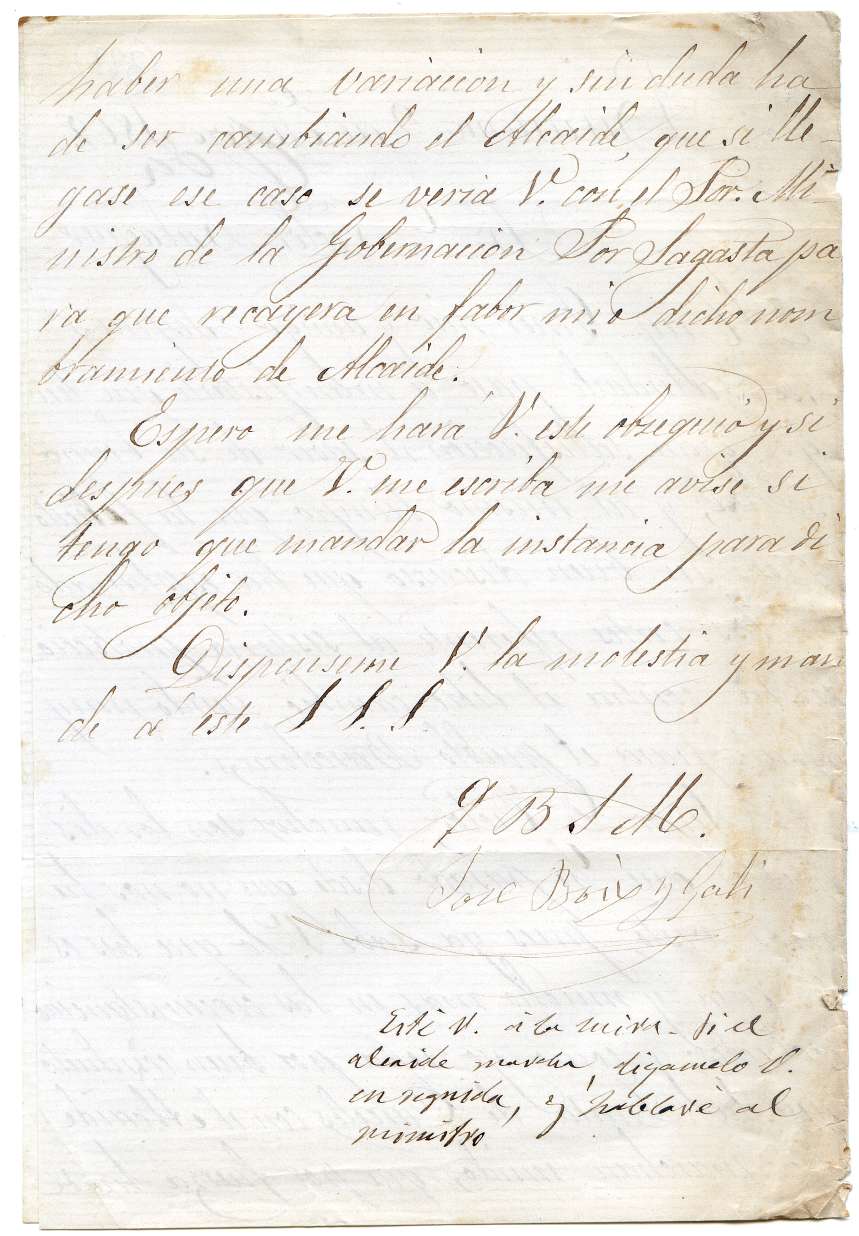 haber una variacion y sin duda ha
de ser cambiando el Alcaide, que si lle-
gase ese caso se veria V. con el Sor. Mi-
nistro de la Gobernacion Sor Sagasta pa
ra que recayera en fabor mio dicho nom
bramiento de Alcaide.
Espero me hará V. este obsequio y si
despues que V. me escriba me avise si
tengo que mandar la instancia para di-
cho objeto.
Dispenseme V. la molestia y man
de á este S. S. S.
q B S M.
Jose Boix y Gali
Esté V. á la mira. Si el
alcaide marcha, digamelo V.
en seguida, y hablaré al
ministro